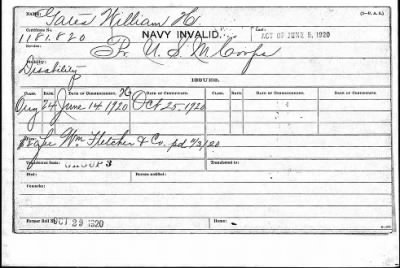 NAME: Gates William H. (3-9 A. S.)
Certificate No. NAVY INVALID. LAW: ACT OF JUNE 5, 1920
1181.820
Service: Pr. U. S. M. Corps
Disability: Disability
ISSUES.
CLASS. RATE. DATE OF COMMENCEMENT. DATE OF CERTIFICATE. CLASS. RATE. DATE OF COMMENCEMENT. DATE OF CERTIFICATE.
Orig 24 June 14 1920 Oct 25. 1920
Wm. Fletcher & Co. pd
Transferred from GROUP 3 Transferred to:
Died: Bureau notified:
Counselor:
Former Roll No. OCT 29 1920 Home: